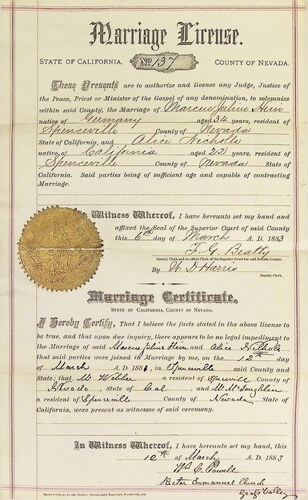 Marriage License.
STATE OF CALIFORNIA, No. 137 COUNTY OF NEVADA.
These Presents are to authorize and license any Judge, Justice of
the Peace, Priest or Minister of the Gospel of any denomination, to solemnize
within said County, the Marriage of Marcus Julius Hein
native of Germany aged 34 years, resident of
Spenceville County of Nevada
State of California, and Alice Nicholls
native of California aged 22 years, resident of
Spenceville County of Nevada State of
California. Said parties being of sufficient age and capable of contracting
Marriage.
In Witness Whereof, I have hereunto set my hand and
affixed the Seal of the Superior Court of said County
this 6th day of March A. D. 1883
F. G. Beatty
County Clerk and ex-officio Clerk of the Superior Court for said Nevada County.
By W. D. Harris
Deputy Clerk.
Marriage Certificate.
STATE OF CALIFORNIA, COUNTY OF NEVADA.
I Hereby Certify, That I believe the facts stated in the above license to
be true, and that upon due inquiry, there appears to be no legal impediment to
the Marriage of said Marcus Julius Hein and Alice Nicholls
that said parties were joined in Marriage by me, on the 12th day
of March A. D. 1883, in Spenceville said County and
State; that M. Webber a resident of
Nevada State of Cal and McLaughlin
a resident of Spenceville County of Nevada State of Cal
were present as witnesses of said ceremony.
In Witness Whereof, I have hereunto set my hand, this
12th of March A. D. 1883
Wm C. Powell
Emmanuel Church
Grass Valley